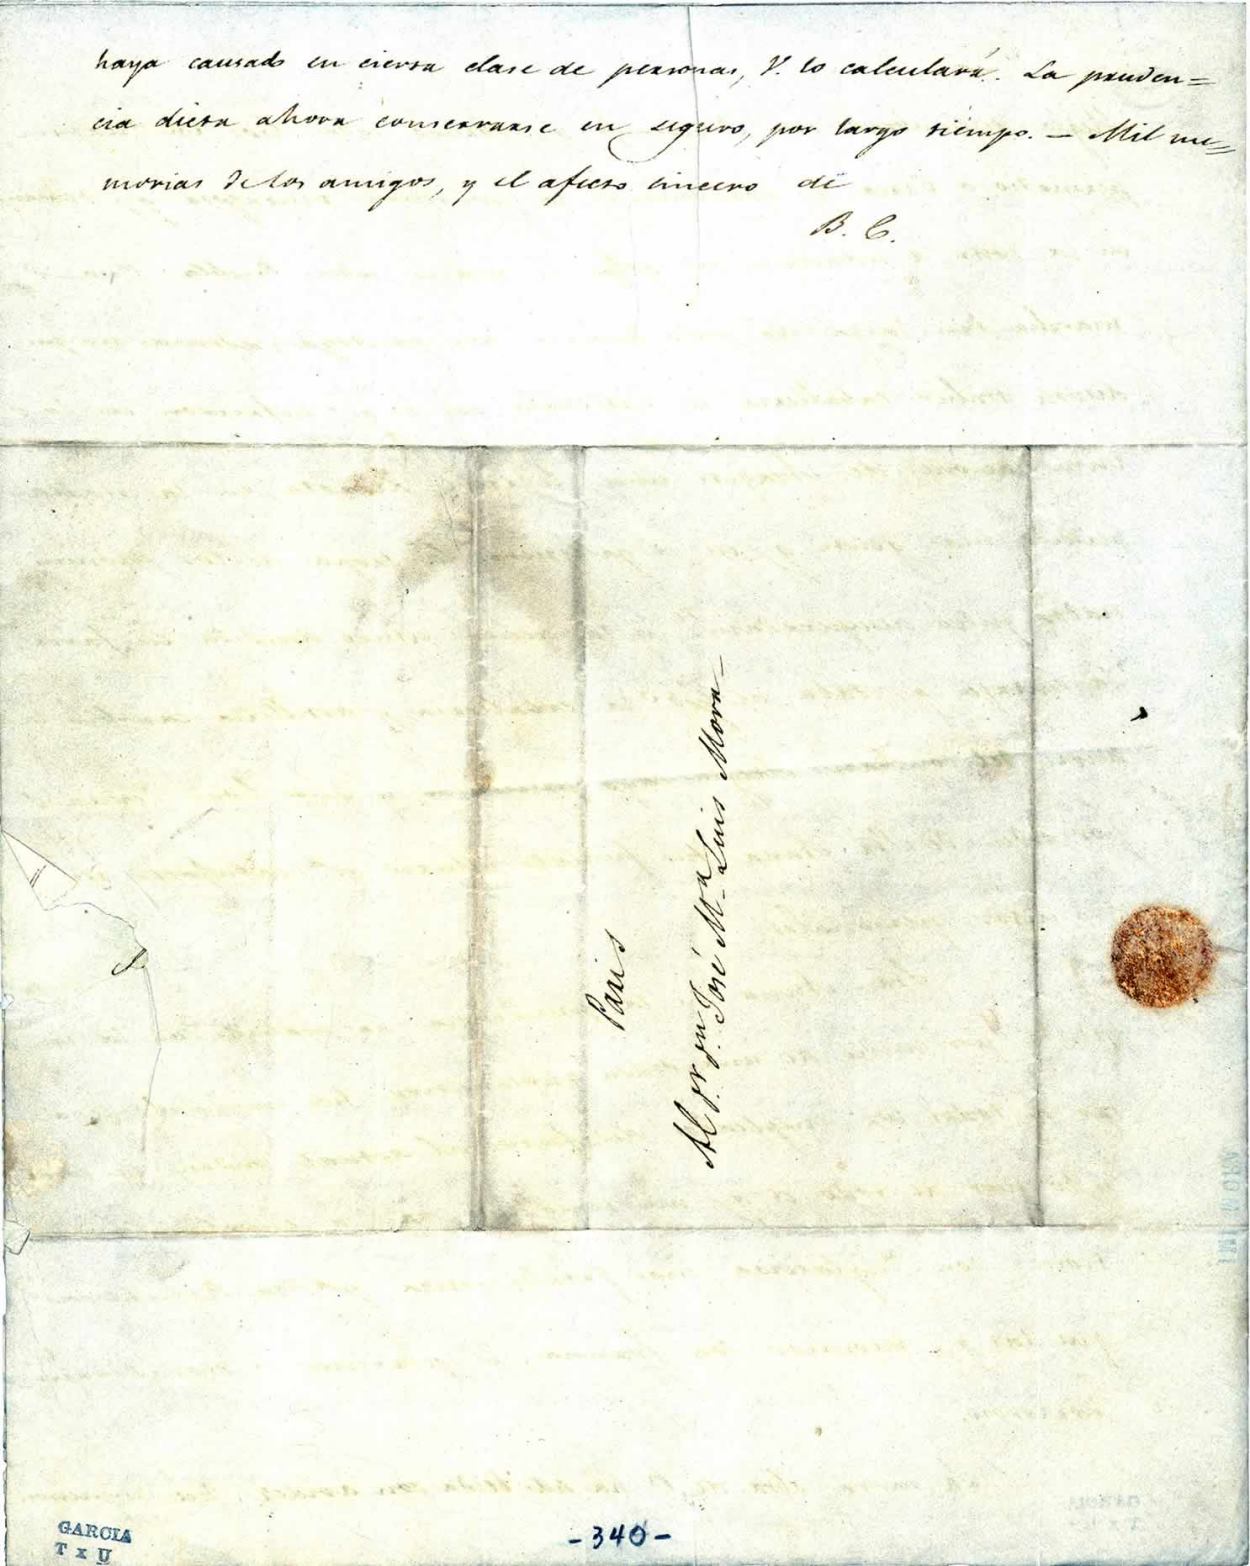 haya causado en cierta clase de personas, V. lo calculará. La pruden=
cia dicta ahora conservarse en seguro, por largo tiempo. — Mil me=
morias de los amigos, y el afecto sincero de
B. C.
Paris
Al Sr. Dn José Ma. Luis Mora—
GARCIA
T x U
-340-